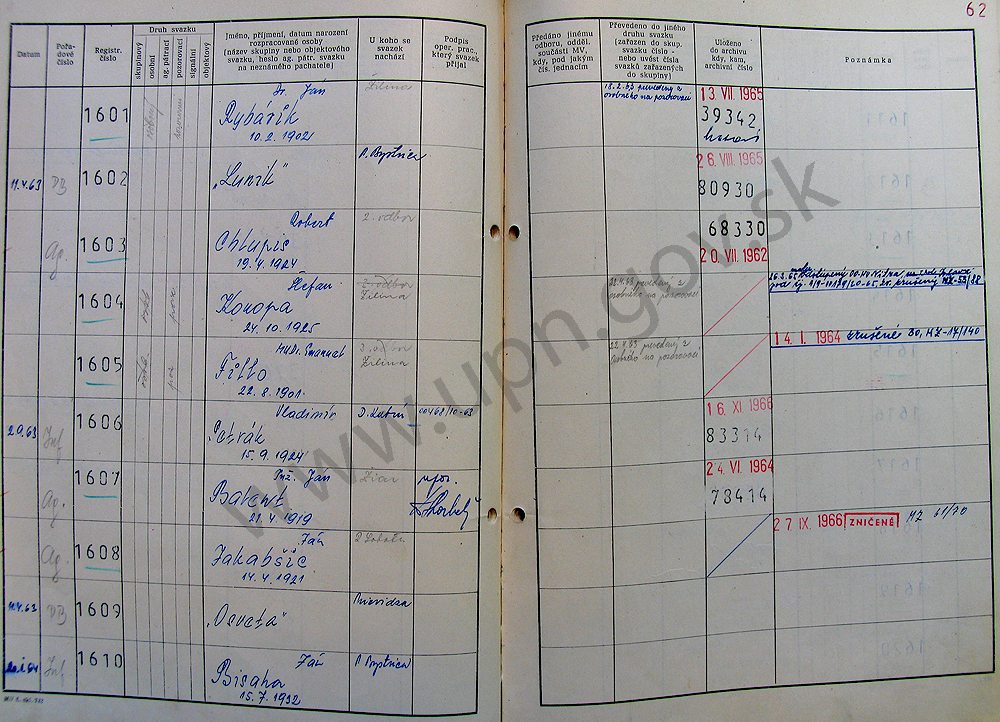 62
Datum
Pořadové číslo
Registr. číslo
Druh svazku
skupinový
osobní
ag. pátrací
pozorovací
signální
objektový
Jméno, příjmení, datum narození
rozpracované osoby
(název skupiny nebo objektového
svazku, heslo ag. pátr. svazku
na neznámého pachatele)
U koho se
svazek
nachází
Podpis
oper. prac.,
který svazek
přijal
Předáno jinému
odboru, odděl.
součásti MV,
kdy, pod jakým
čís. jednacím
Převedeno do jiného
druhu svazku
(zařazen do skup.
svazku číslo -
nebo uvést čísla
svazků zařazených
do skupiny)
Uloženo
do archivu
kdy, kam,
archivní číslo
Poznámka
1601
Dr. Ján
Rybárik
10.2. 1902
Žilina
18.2.63 prevedený z
osobného na pozorovací
13. VII. 1965
39342
11.4.63
DB
1602
„Luník"
B. Bystrica
26. VIII. 1965
80930
Ag.
1603
Robert
Chlupis
19.4. 1924
2. odbor
68330
20. VII. 1962
1604
Štefan
Konopa
24. 10. 1925
2. odbor
Žilina
22.4.63 prevedený z
osobného na pozorovací
1605
MUDr. Emanuel
Fillo
22. 8. 1901
2. odbor
Žilina
22.4.63 prevedený z
osobného na pozorovací
14. I. 1964 zrušené 30, MZ-17/140
2.9.63
Inf.
1606
Vladimír
Petrák
15. 9. 1924
D. Kubín
00468/10-63
16. XI. 1966
83314
Ag.
1607
Inž. Ján
Balent
21. 4. 1919
Žiar
npor.
24. VI. 1964
78414
Ag.
1608
Ján
Jakabšic
14. 4. 1921
27. IX. 1966 ZNIČENÉ MZ 61/70
11.4.63
DB
1609
„Osveta"
Prievidza
Inf.
1610
Ján
Bisaha
15. 7. 1932
B. Bystrica
www.upn.gov.sk